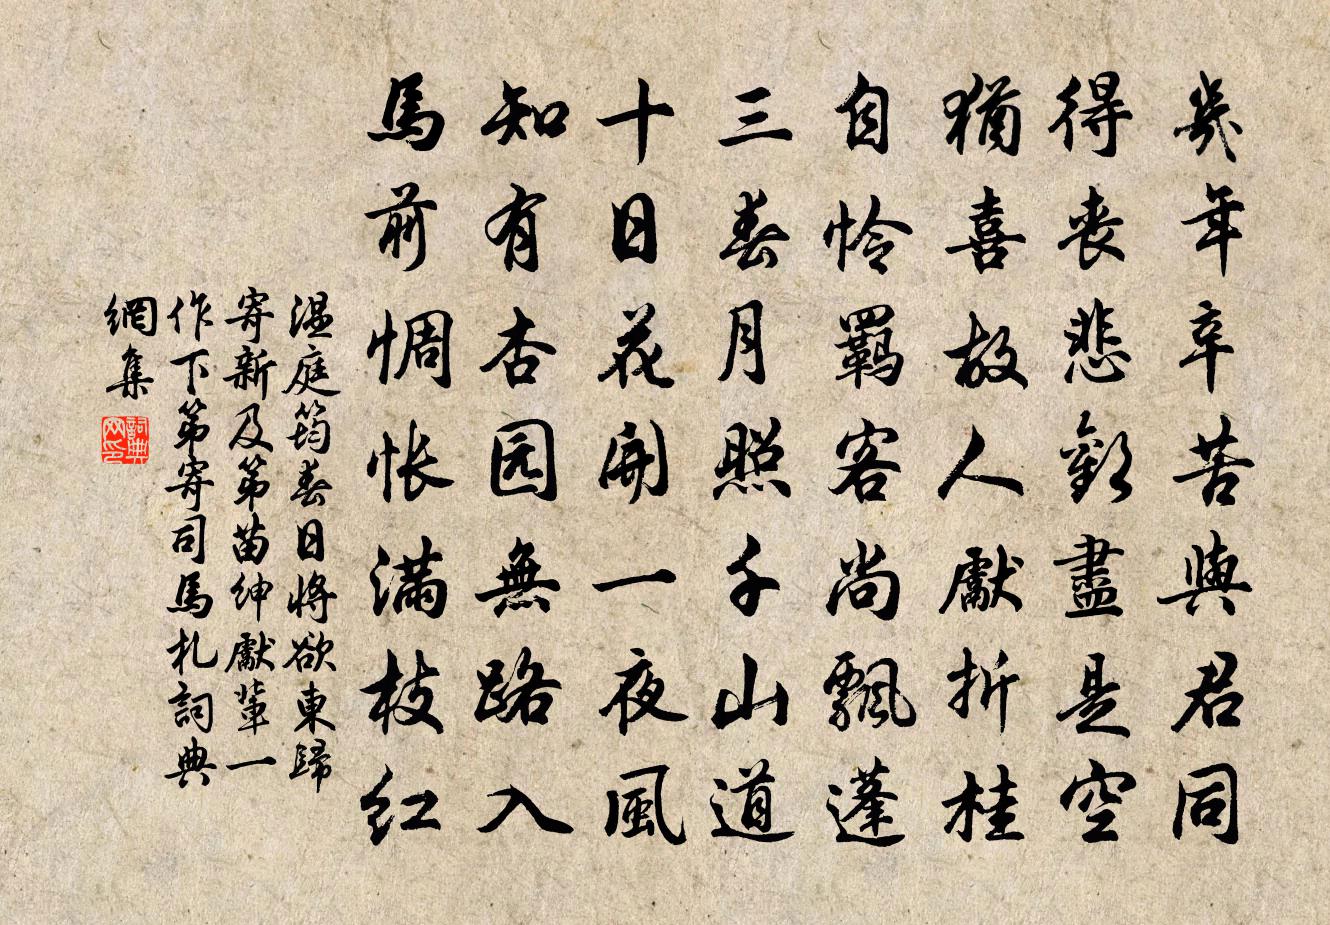 幾年辛苦與君同
得喪悲歡盡是空
猶喜故人獻折桂
自怜羈客尚飄蓬
三春月照千山道
十日花開一夜風
知有杏园無路入
馬前惆怅满枝红
温庭筠春日將欲東歸
寄新及第苗紳獻輩一
作下第寄司馬札詞典
網集
詞典
网印